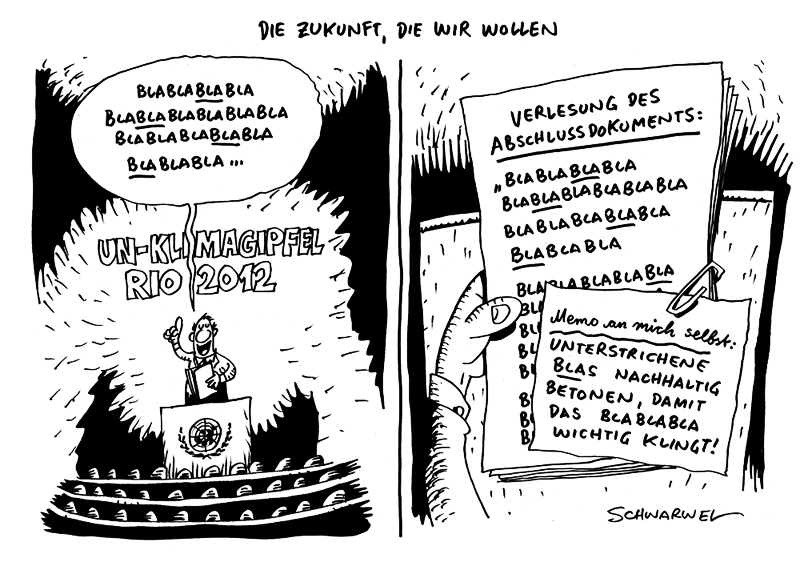 DIE ZUKUNFT, DIE WIR WOLLEN
BLABLABLABLA
BLABLABLABLABLABLA
BLABLABLABLABLA
BLABLABLA...
UN-KLIMAGIPFEL
RIO 2012
VERLESUNG DES
ABSCHLUSSDOKUMENTS:
„BLABLABLABLA
BLABLABLABLABLABLA
BLABLABLABLABLA
BLABLABLA
BLABLABLABLABLA
Memo an mich selbst:
UNTERSTRICHENE
BLAS NACHHALTIG
BETONEN, DAMIT
DAS BLABLABLA
WICHTIG KLINGT!
SCHWARWEL